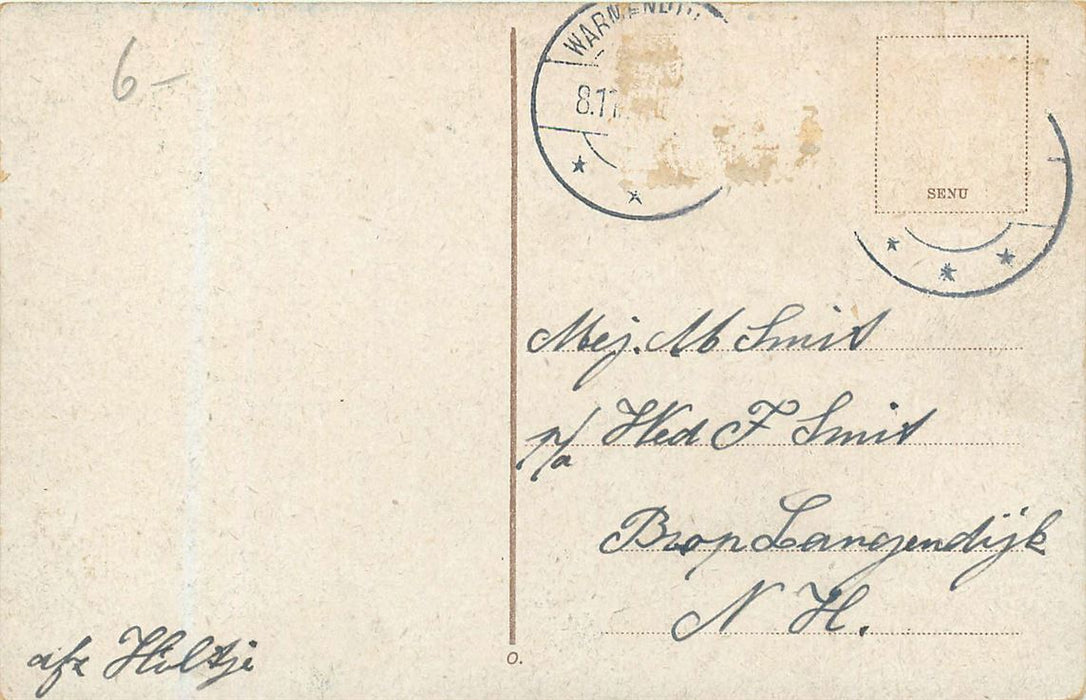 6-
WARMENH
8.11
SENU
Mej. M Smit
p/a Wed F Smit
Br op Langendijk
N H.
afz Hiltje
O.